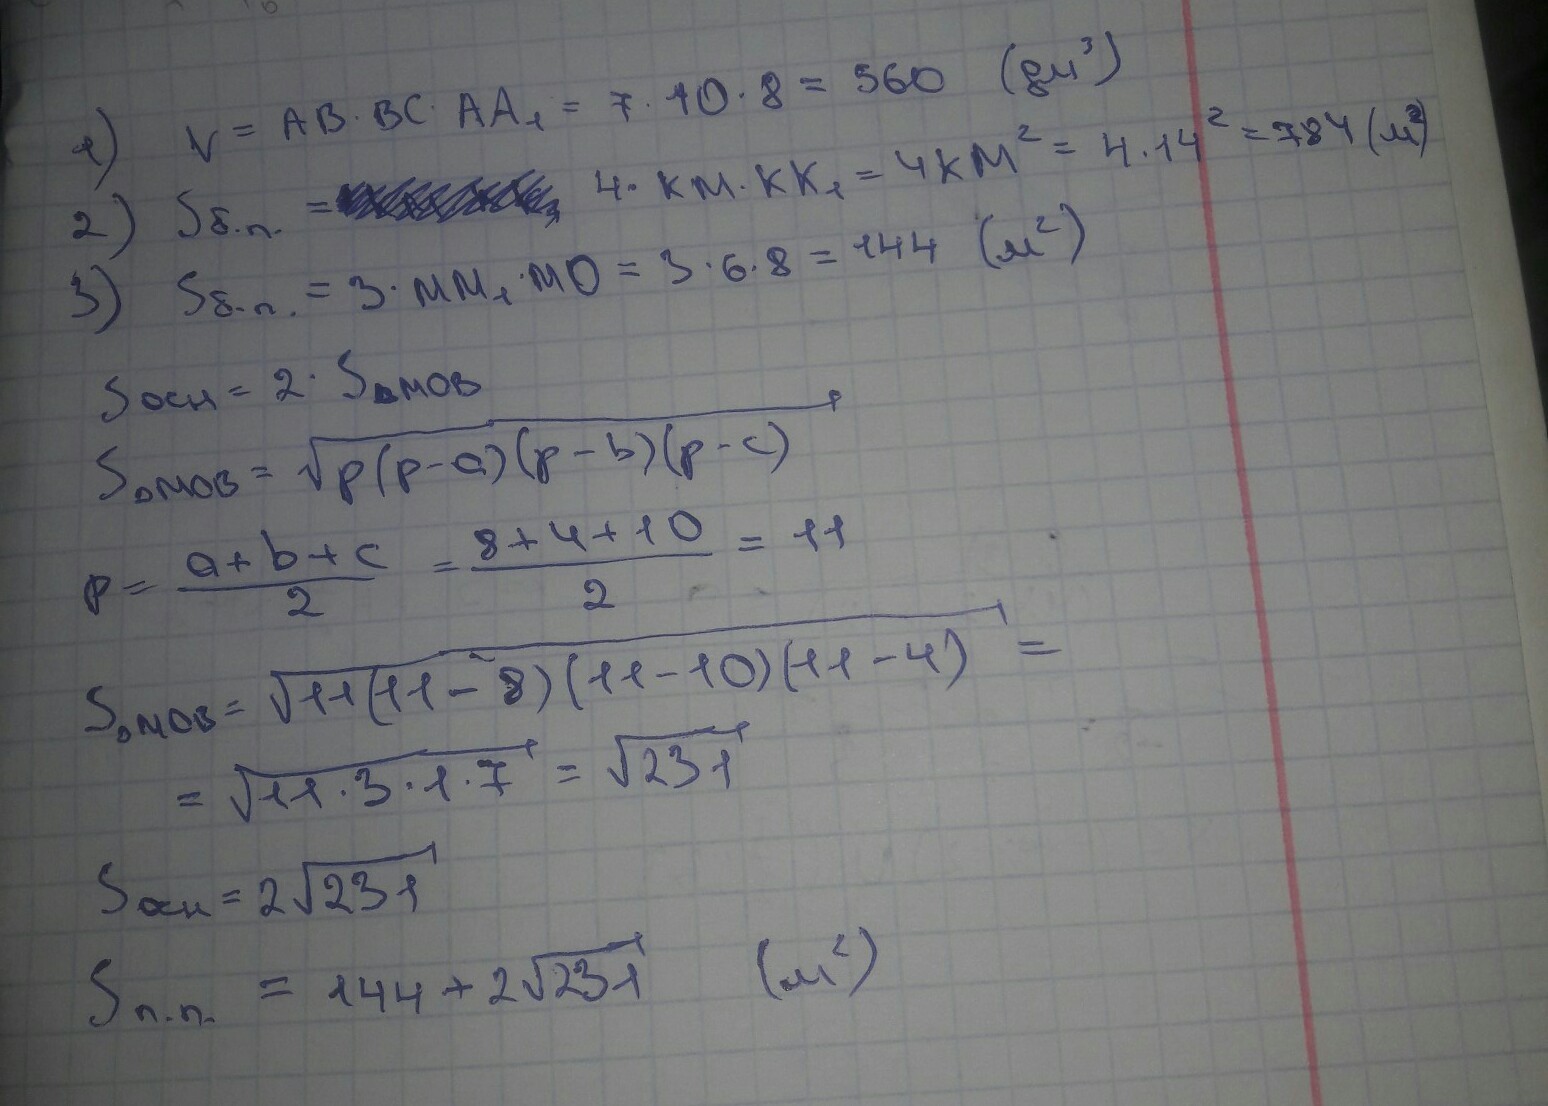 1) V = AB · BC · AA₁ = 7 · 10 · 8 = 560 (дм³)
2) Sб.п. = 4 · KM · KK₁ = 4KM² = 4 · 14² = 784 (м²)
3) Sб.п. = 3 · MM₁ · MO = 3 · 6 · 8 = 144 (м²)
Sосн = 2 · S△MOB
S△MOB = √p(p-a)(p-b)(p-c)
p = (a+b+c)/2 = (8+4+10)/2 = 11
S△MOB = √11(11-8)(11-10)(11-4) =
= √11·3·1·7 = √231
Sосн = 2√231
Sп.п. = 144 + 2√231 (м²)